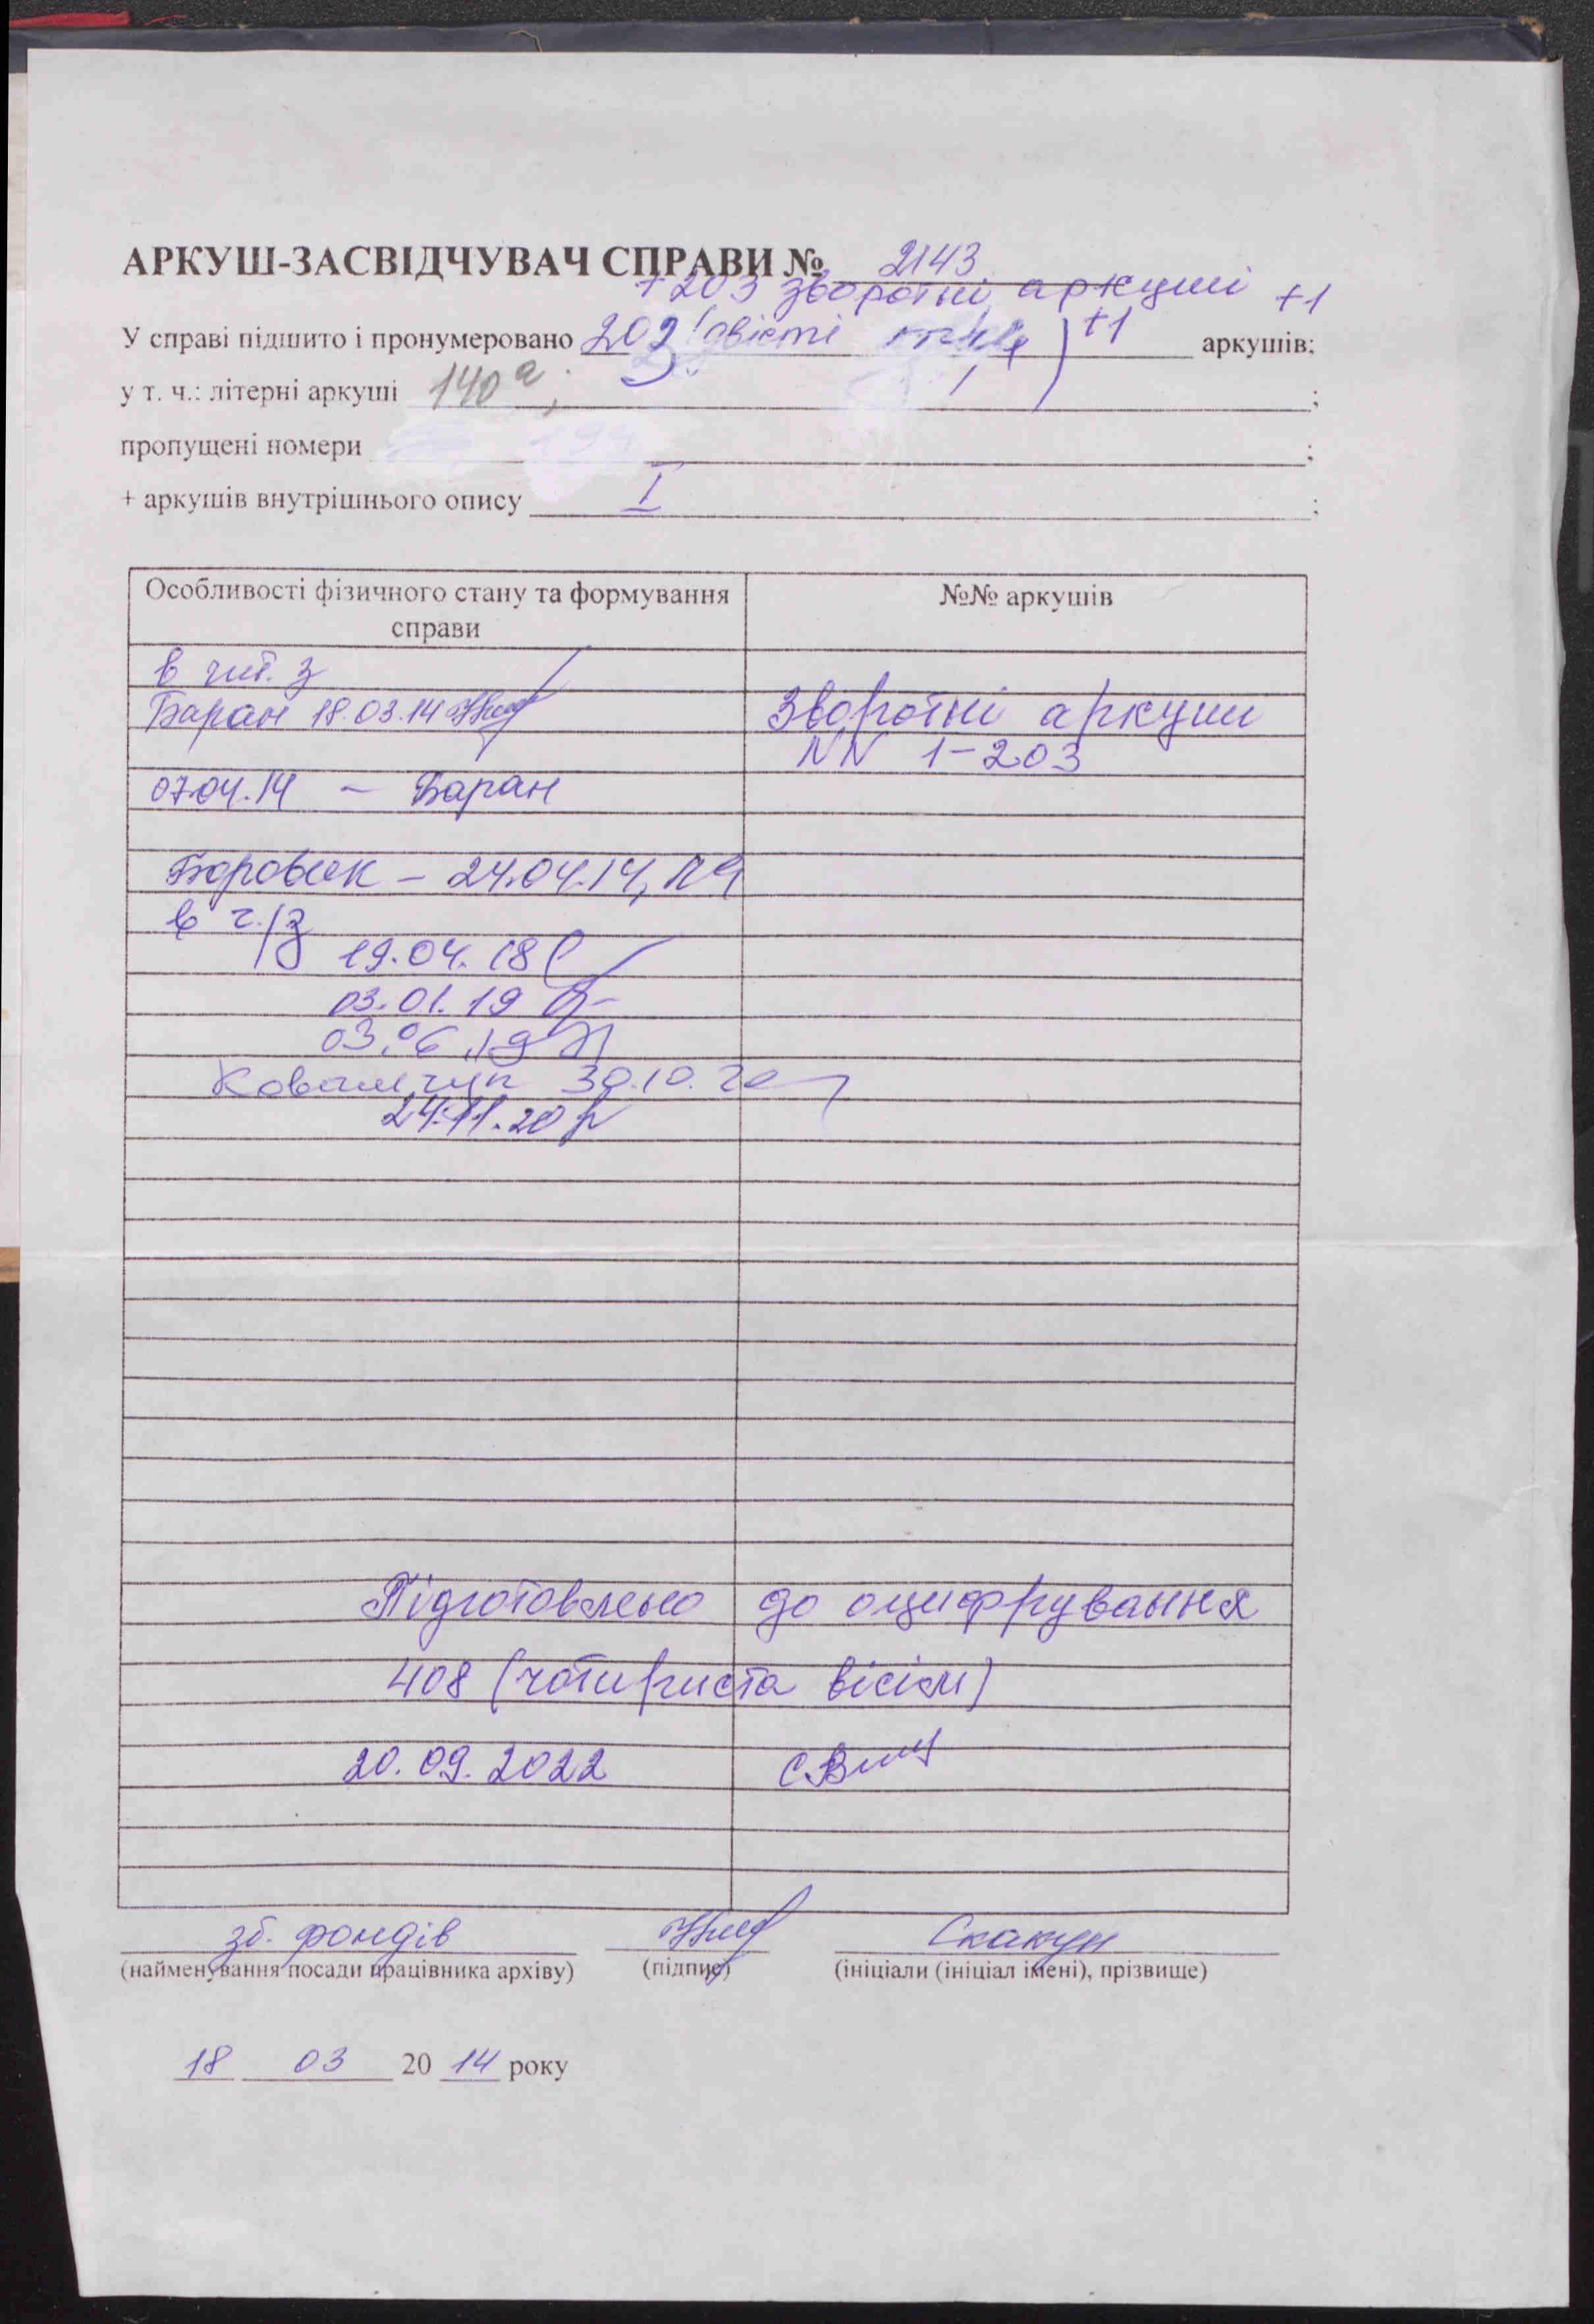 АРКУШ-ЗАСВІДЧУВАЧ СПРАВИ № 2143
+ 203 зворотні аркуші +1
У справі підшито і пронумеровано 202 (двісті ) +1 аркушів;
у т. ч.: літерні аркуші 140а, ;
пропущені номери ;
+ аркушів внутрішнього опису I ;
Особливості фізичного стану та формування справи
№№ аркушів
в чит. з
Баран 18.03.14
Зворотні аркуши
NN 1-203
07.04.14 - Баран
Боровик - 24.04.14,
в ч/з
19.04.18
03.01.19
03.06.19
Ковальчук 30.10.20
24.11.20
Підготовлено до оцифрування
408 (чотириста вісім)
20.09.2022
зб. фондів Скакун
(найменування посади працівника архіву) (підпис) (ініціали (ініціал імені), прізвище)
18 03 20 14 року